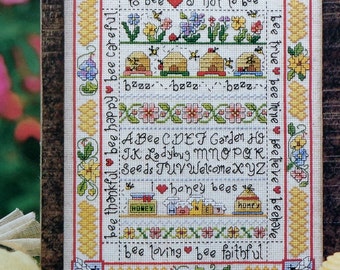 to bee ♥ or not to bee
bzzz bzzz bzzz
A Bee C D E F Garden H I
J K Ladybug M N O P Q R
Seeds T U V Welcome X Y Z
♥ honey bees
HONEY HONEY
bee loving ♥ bee faithful
bee thankful ♥ bee happy ♥ bee careful
bee true ♥ bee mine ♥ believe ♥ behave